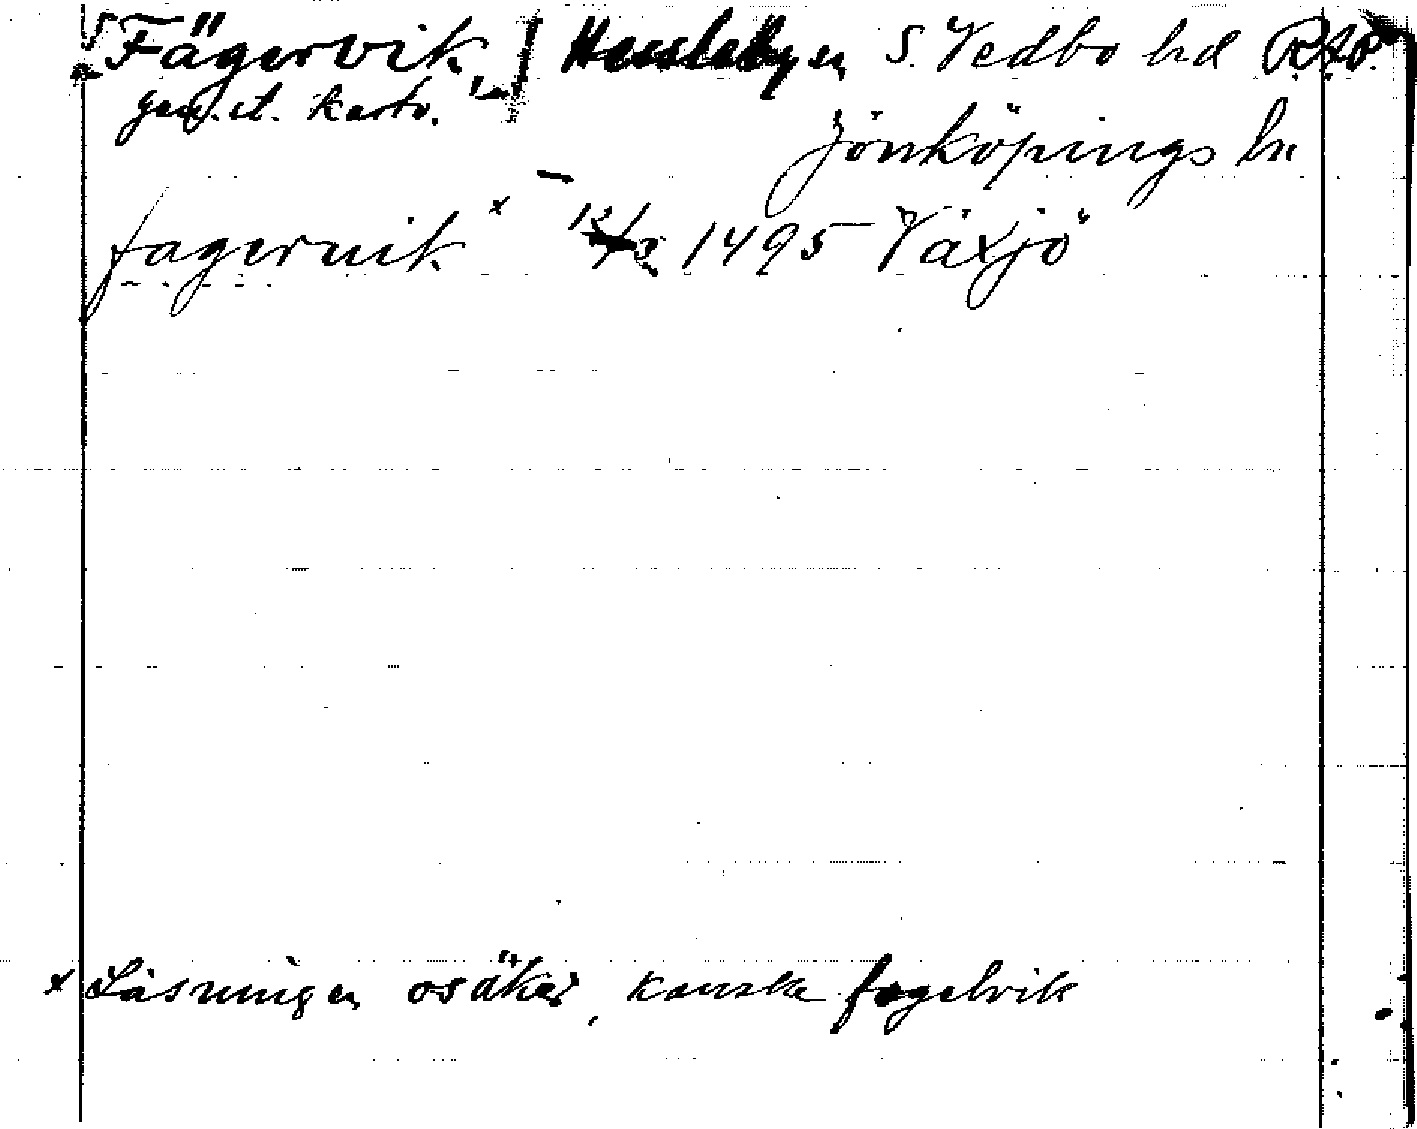 Fägervik Hessleby sn S. Vedbo hd RAP.
gen. st. karta.
Jönköpings ln
fageruik x 12/3 1495 Växjö
x Läsningen osäker, kanske fogelvik